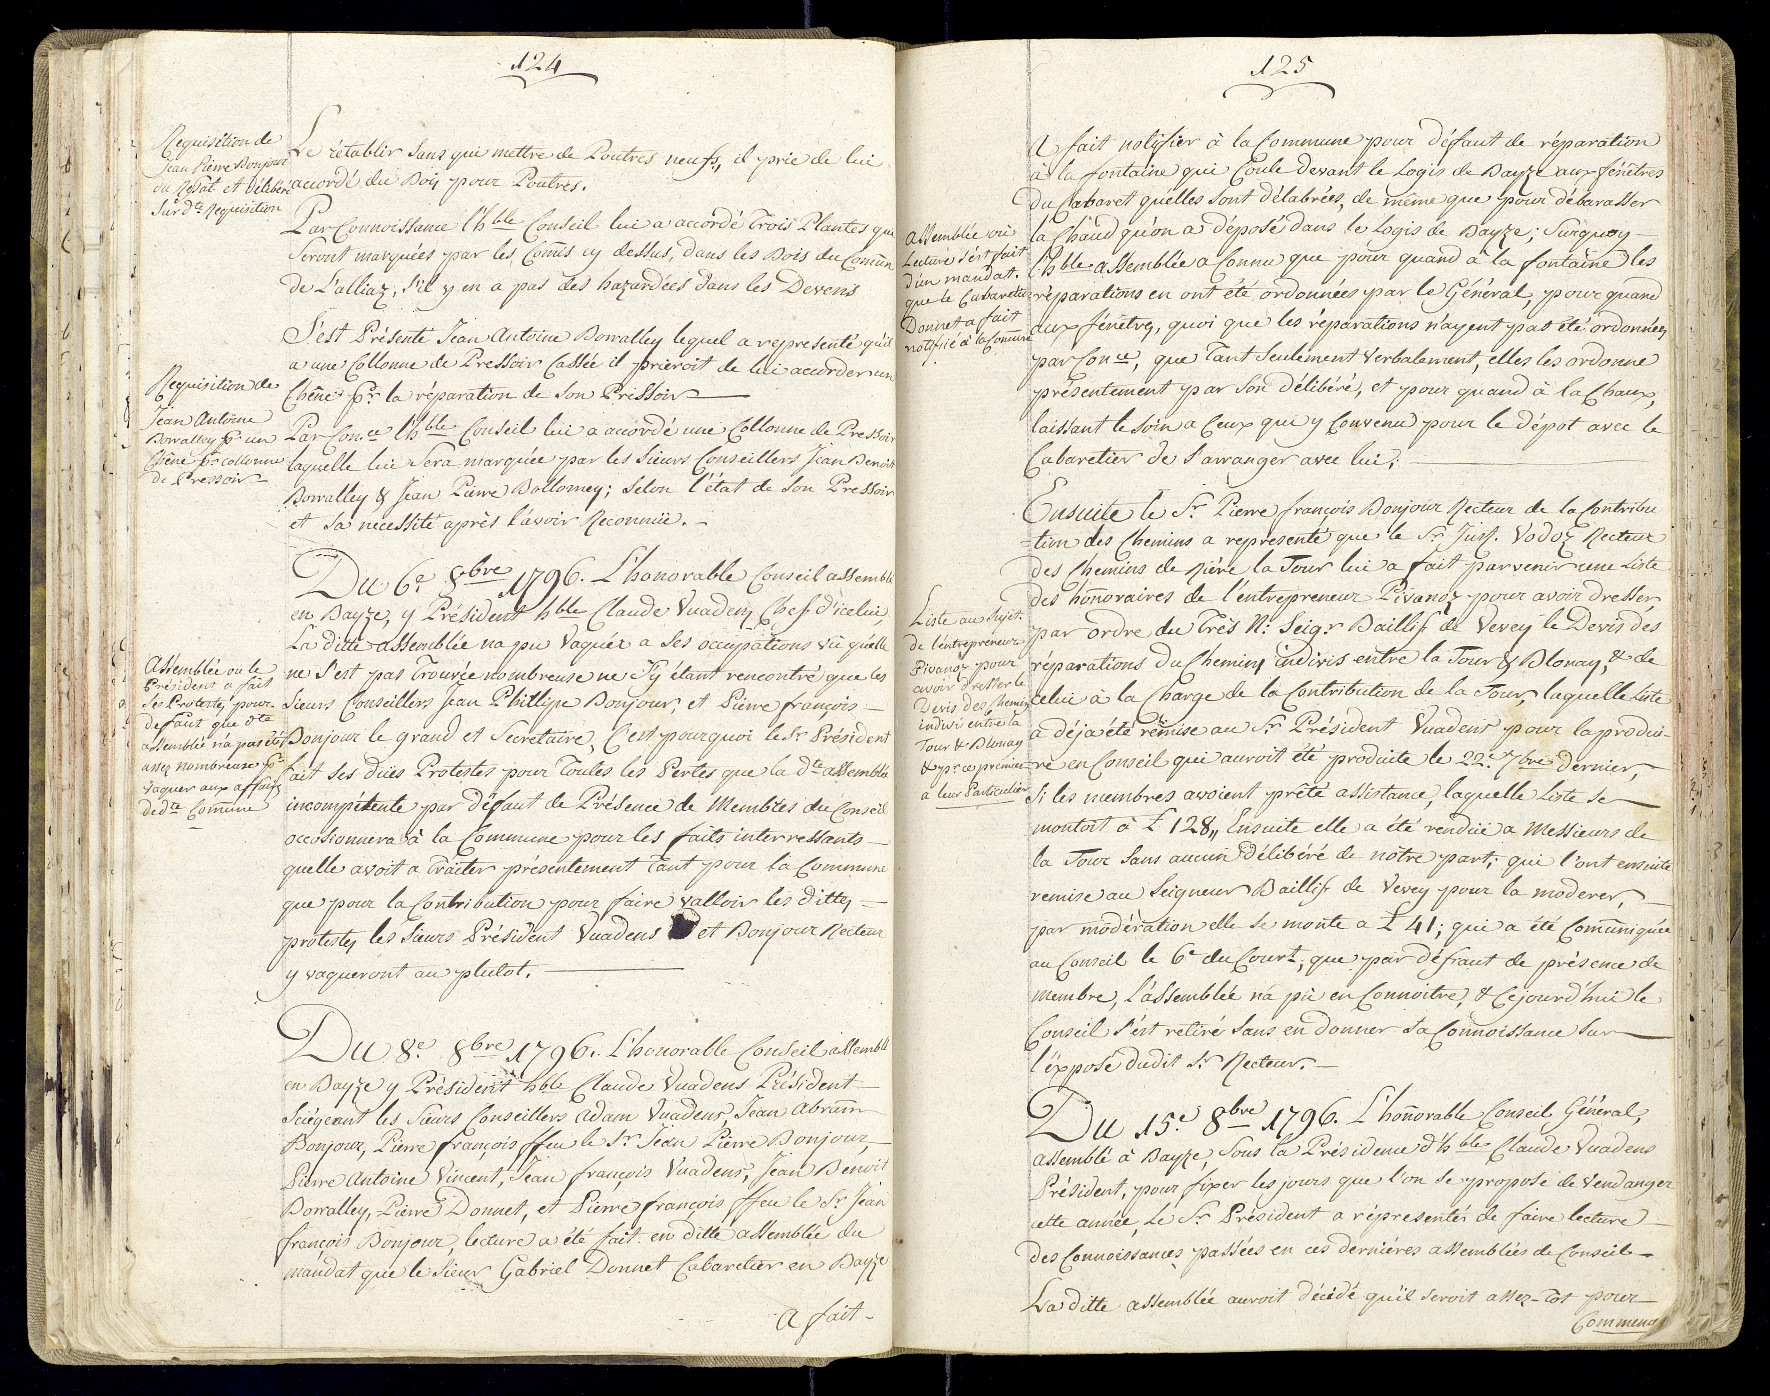 124
Requisition de
Jean Pierre Bonjour
du Résat et Délibéré
Sur dte Requisition
Le rétablir Sans qui mettre de Poutres neufs, il prie de lui
acordé du Bois pour Poutres.
Par Connoissance l'hble Conseil lui a accordé Trois Plantes qui
Seront marquées par les Comis cy dessus, dans les Bois du Comun
de L'alliaz, S'il y en a pas des hazardées dans les Devens
S'est Présenté Jean Antoine Borralley lequel a representé qu'il
a une Collonne de Pressoir Cassée il prieroit de lui accorder un
Chêne pr la réparation de Son Pressoir
Requisition de
Jean Antoine
Borralley pr un
Chêne pr collonne
de Pressoir
Par Conce l'hble Conseil lui a accordé une Collonne de Pressoir
laquelle lui Sera marquée par les Sieurs Conseillers Jean Benoit
Borralley & Jean Pierre Bollomey; Selon l'état de Son Pressoir
et Sa necessité après l'avoir Reconnüe. -
Du 6e 8bre 1796. L'honorable Conseil assemblé
en Bayze, y Président hble Claude Vuadens Chef d'icelui,
La ditte assemblée na pu vaquér a Ses occupations vû quélle
ne S'est pas Trouvée nombreuse ne S'y étant rencontré que les
Sieurs Conseillers Jean Phillipe Bonjour, et Pierre françois -
Bonjour le grand et Secretaire, C'est pourquoi le Sr Président
fait Ses düës Protestes pour Toutes les Pertes que la dte assemblée
incompétente par défaut de Présence de Membres du Conseil
occasionnera à la Commune pour les faits interressants -
quelle avoit a Traiter présentement Tant pour la Commune
que pour la Contribution pour faire valloir les dittes -
protestes les Sieurs Président Vuadens et Bonjour Recteur
y vaqueront au plutot.
Assemblée ou le
Président a fait
Ses Protestes pour
defaut que dte
assemblée n'a pas été
assez nombreuse pr
vaquer aux affaires
de dte Commune
Du 8e 8bre 1796. L'honorable Conseil assemblé
en Bayze y Président hble Claude Vuadens Président -
Sciégeant les Sieurs Conseillers Adam Vuadens, Jean Abram
Bonjour, Pierre françois ffeu le Sr Jean Pierre Bonjour,
Pierre Antoine Vincent, Jean françois Vuadens, Jean Benoit
Borralley, Pierre Donnet, et Pierre françois ffeu le Sr Jean
françois Bonjour, lecture a été fait en ditte assemblée du
mandat que le Sieur Gabriel Donnet Cabaretier en Bayze
A fait -
125
A fait notifier à la Commune pour défaut de réparation
à la fontaine qui Coule devant le Logis de Bayze aux fénêtres
du Cabaret quelles sont délabrées, de même que pour débarasser
la Chaud qu'on a déposé dans le Logis de Bayze; Surquoy
l'hble assemblée a Connu que pour quand à la fontaine les
réparations en ont été ordonnées par le Général, pour quand
aux fénétres, quoi que les réparations n'ayent pas été ordonnées
par Conce, que Tant Seulement verbalement, elles les ordonne
présentement par Son délibéré, et pour quand à la Chaux,
laissant le soin a Ceux que y Convenu pour le dépot avec le
Cabaretier de S'arranger avec lui;
Assemblée où
Lecture S'est fait
d'un mandat
que le Cabaretier
Donnet a fait
notifié à la Comune
Ensuite le Sr Pierre françois Bonjour Recteur de la Contribu
=tion des Chemins a representé que le Sr Vodoz Recteur
des Chemins de Riére la Tour lui a fait parvenir une Liste
des honnoraires de l'entrepreneur Pivanoz pour avoir dresser
par ordre du Très N: Seigr Baillif de Vevey le Devis des
réparations du Chemin indivis entre la Tour & Blonay, & de
celui à la Charge de la Contribution de la Tour, laquelle Liste
a déja été remise au Sr Président Vuadens pour la produi-
re en Conseil qui auroit été produite le 22e 7bre dernier,
Si les membres avoient prêté assistance, laquelle Liste se
montoit à £ 128,, Ensuite elle a été rendüe a Messieurs de
la Tour Sans aucun Délibéré de nôtre part; qui l'ont ensuite
remise au Seigneur Baillif de Vevey pour la moderer,
par modération elle se monte a £ 41; qui a été Comuniquée
au Conseil le 6e du Court, que par défraut de présence de
membre, l'assemblée n'a pû en Connoitre, & Cejourd'hui le
Conseil S'ést retiré Sans en donner Sa Connoissance Sur
l'éxposé dudit Sr Recteur. -
Liste au Sujet
de l'entrepreneur
Pivanoz pour
avoir dresser le
Devis des Chemin
indivi entre la
Tour & Blonay
& pr ce premier
a leur Particulier
Du 15e 8bre 1796. L'honnorable Conseil Général,
assemblé à Bayze, Sous la Présidence d'hble Claude Vuadens
Président, pour fixer les jours que l'on se propose de Vendanger
cette année, Le Sr Président a réprésentés de faire lecture
des Connoissances passées en ces derniéres assemblées de Conseil -
La ditte assemblée auroit décidé quil seroit assez-Tot pour
Commenc